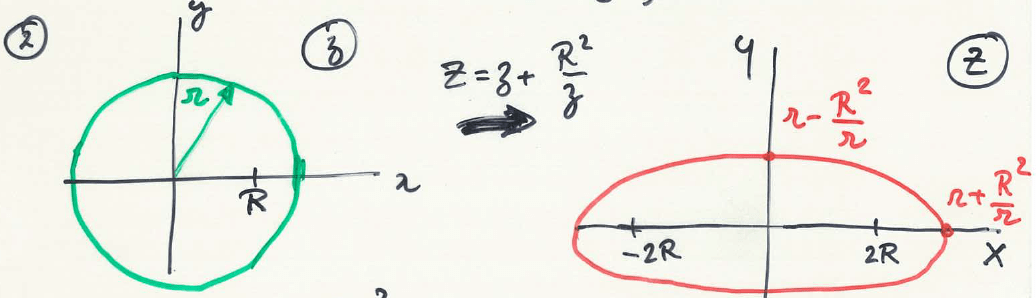 2
y
z
r
R
x
Z = z + R²/z
Y
Z
r - R²/r
r + R²/r
-2R
2R
X